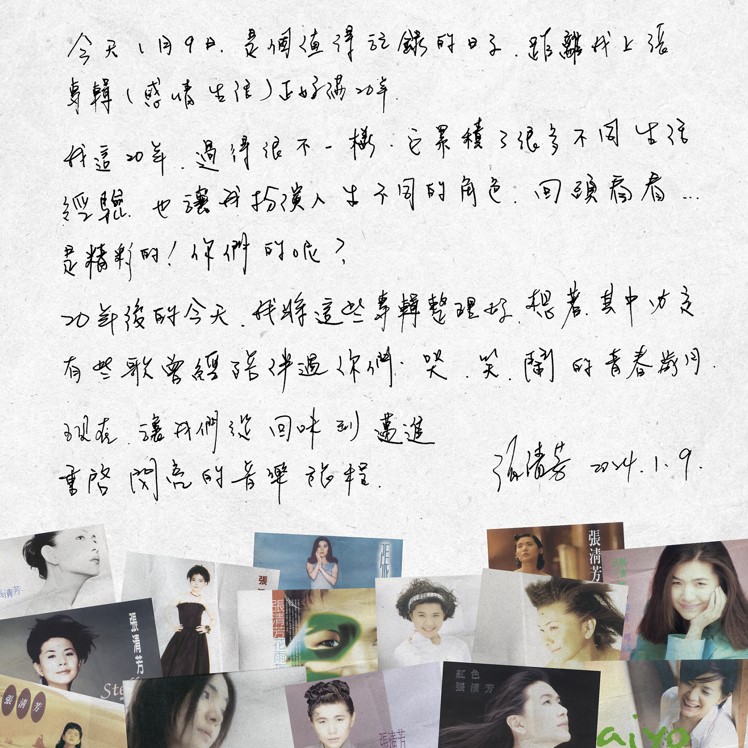 今天1月9日.是個值得記錄的日子.距離我上張
專輯(感情生活)正好滿20年.
我這20年.過得很不一樣.它累積了很多不同生活
經驗.也讓我扮演人生不同的角色.回頭看看...
是精彩的!你們的呢?
20年後的今天.我將這些專輯整理好.想著.其中一定
有些歌曾經陪伴過你們.哭.笑.鬧的青春歲月.
現在.讓我們從回味到邁進
重啓閃亮的音樂旅程.
張清芳 2024.1.9.
張清芳
張
張清芳
張清芳
張清芳
張清芳
張清芳
張清芳
紅色
張清芳
aiyo